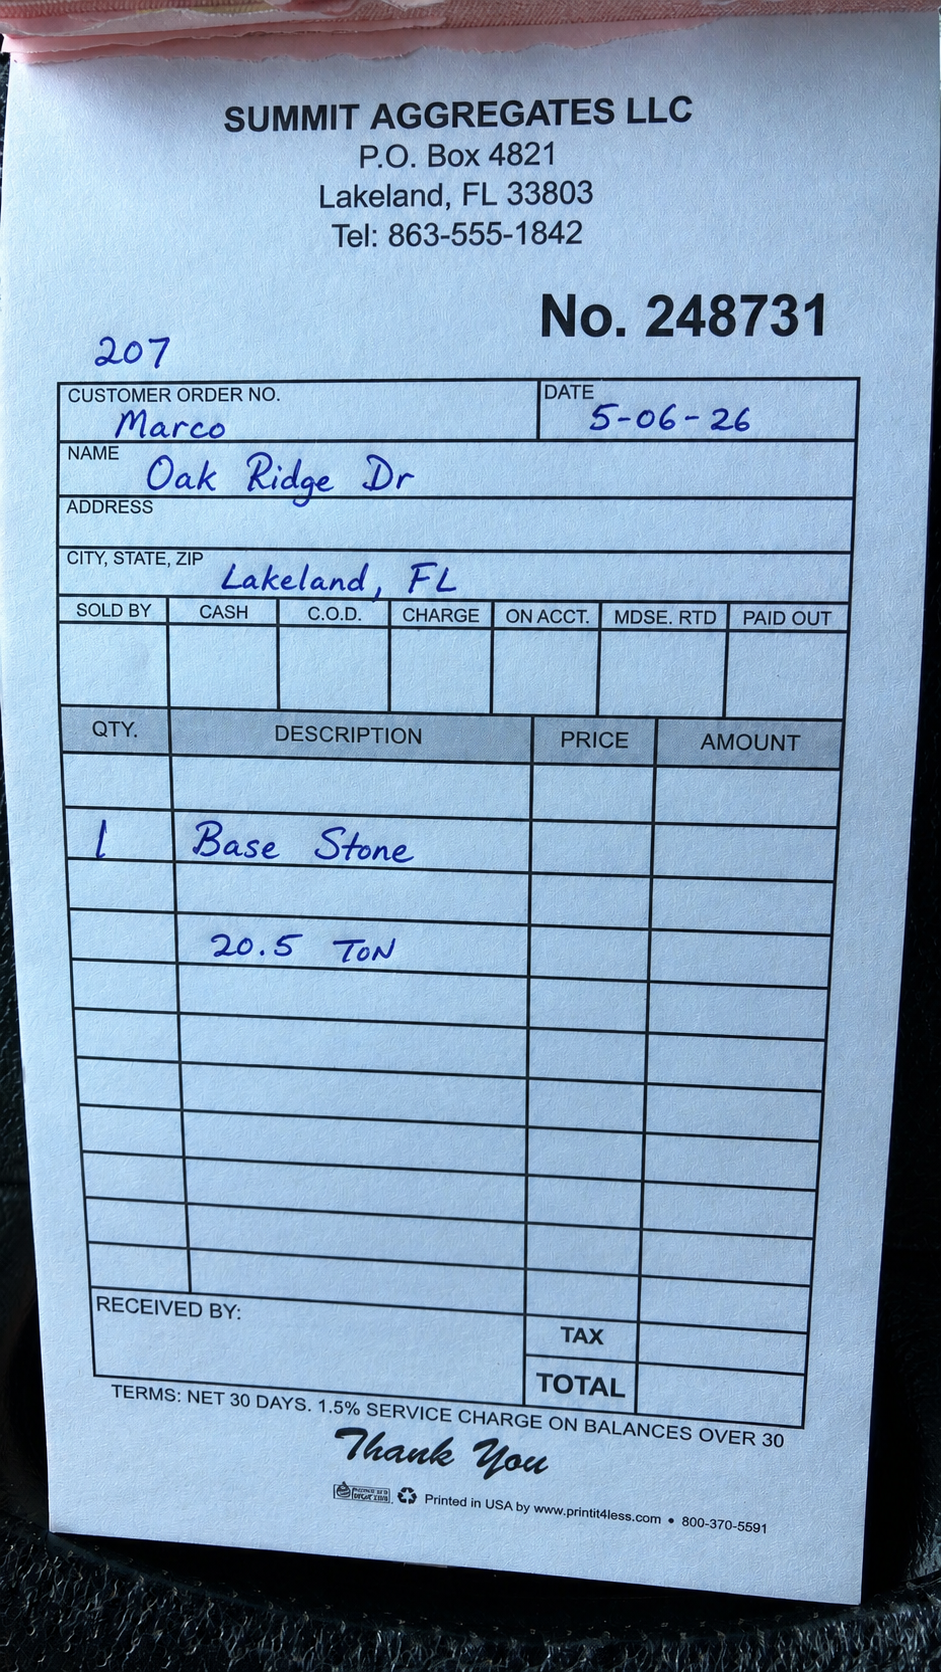 SUMMIT AGGREGATES LLC
P.O. Box 4821
Lakeland, FL 33803
Tel: 863-555-1842
No. 248731
207
CUSTOMER ORDER NO. DATE
Marco 5-06-26
NAME
Oak Ridge Dr
ADDRESS
CITY, STATE, ZIP
Lakeland, FL
SOLD BY CASH C.O.D. CHARGE ON ACCT. MDSE. RTD PAID OUT
QTY. DESCRIPTION PRICE AMOUNT
1 Base Stone
20.5 TON
RECEIVED BY:
TAX
TOTAL
TERMS: NET 30 DAYS. 1.5% SERVICE CHARGE ON BALANCES OVER 30
Thank You
Printed in USA by www.printit4less.com • 800-370-5591